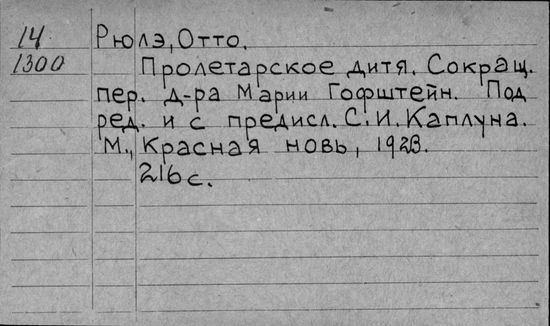 14
1300
Рюлэ, Отто.
Пролетарское дитя. Сокращ.
пер. д-ра Марии Гофштейн. Под
ред. и с предисл. С. И. Каплуна.
М., Красная новь, 1923.
216 с.